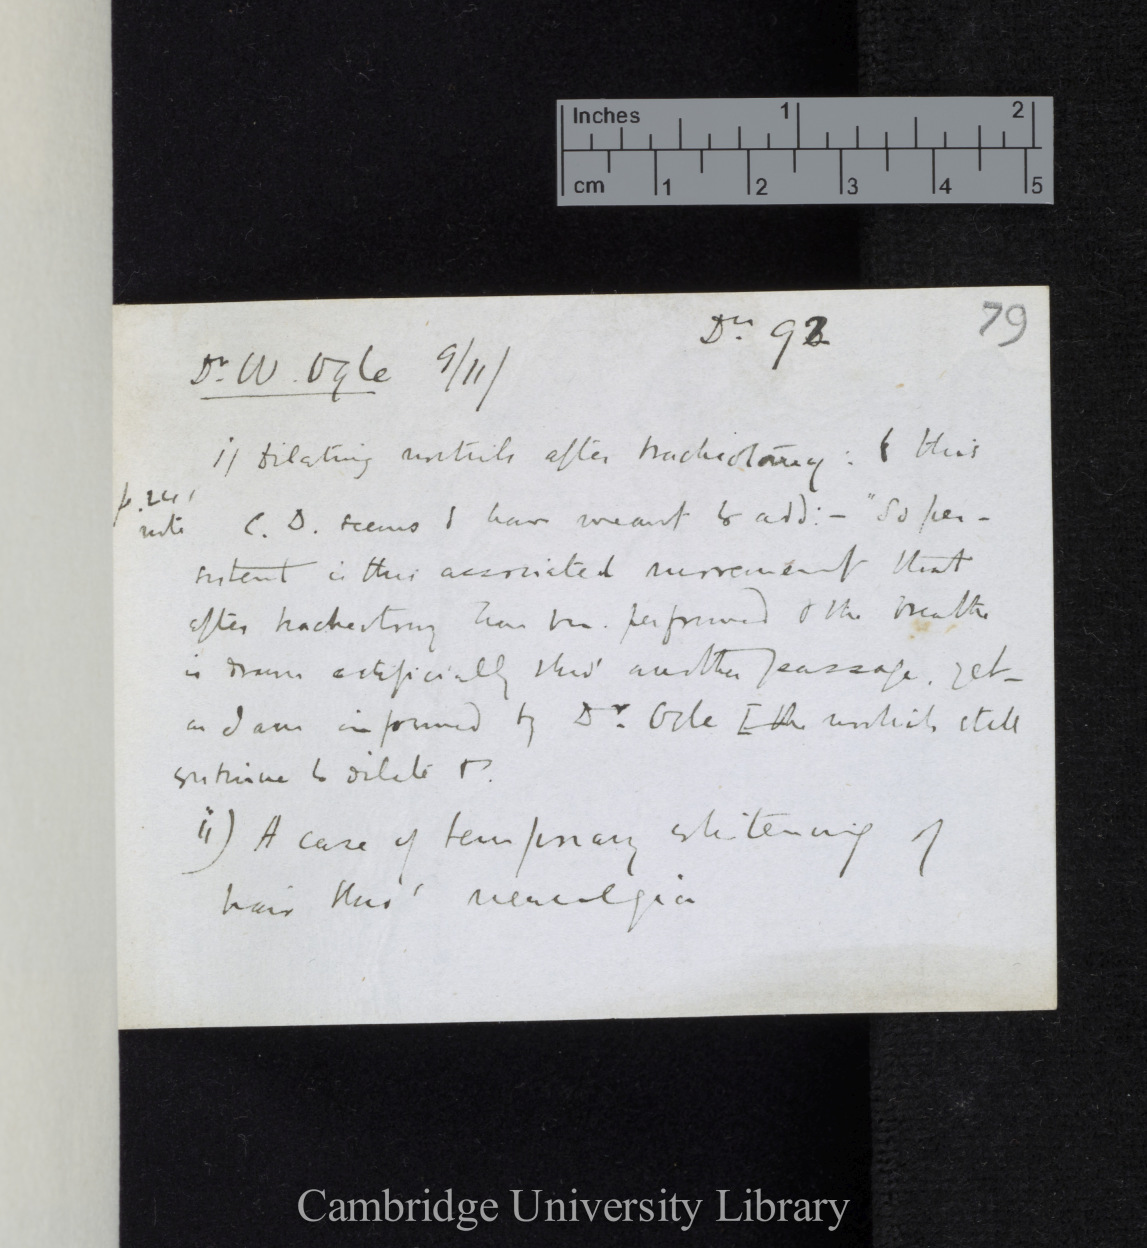 Inches 1 2
cm 1 2 3 4 5
79
Dr. W. Ogle 9/11/
i) Dilating nostrils after tracheotomy: & this
note C. D. seems to have meant to add:- "So per-
sistent is this associated movement that
after tracheotomy has been performed & the breath
is drawn artificially thro' another passage, yet-
as I am informed by Dr. Ogle [the nostrils still
continue to dilate
ii) A case of temporary whitening of
hair thro' neuralgia
Cambridge University Library